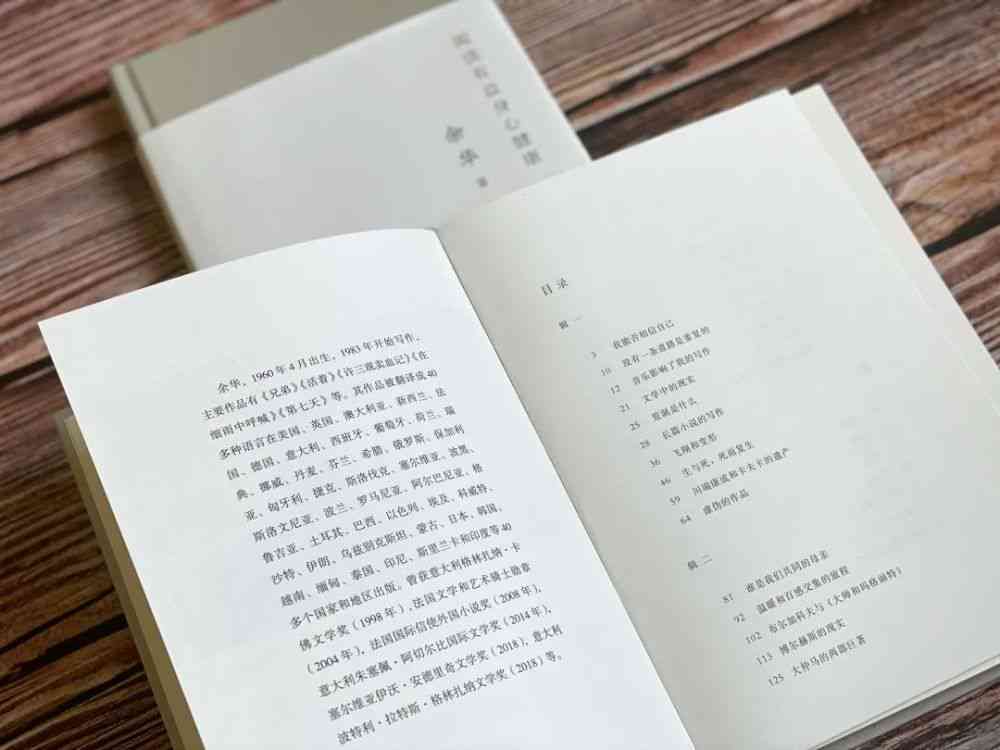 阅读有益身心健康
余华 著
余华，1960年4月出生，1983年开始写作，
主要作品有《兄弟》《活着》《许三观卖血记》《在
细雨中呼喊》《第七天》等。其作品被翻译成40
多种语言在美国、英国、澳大利亚、新西兰、法
国、德国、意大利、西班牙、葡萄牙、荷兰、瑞
典、挪威、丹麦、芬兰、希腊、俄罗斯、保加利
亚、匈牙利、捷克、斯洛伐克、塞尔维亚、波黑、
斯洛文尼亚、波兰、罗马尼亚、阿尔巴尼亚、格
鲁吉亚、土耳其、巴西、以色列、埃及、科威特、
沙特、伊朗、乌兹别克斯坦、蒙古、日本、韩国、
越南、缅甸、泰国、印尼、斯里兰卡和印度等40
多个国家和地区出版。曾获意大利格林扎纳·卡
佛文学奖（1998年），法国文学和艺术骑士勋章
（2004年），法国国际信使外国小说奖（2008年），
意大利朱塞佩·阿切尔比国际文学奖（2014年），
塞尔维亚伊沃·安德里奇文学奖（2018），意大利
波特利·拉特斯·格林扎纳文学奖（2018）等。
目录
辑一
3 我能否相信自己
10 没有一条道路是重复的
12 音乐影响了我的写作
21 文学中的现实
25 荒诞是什么
28 长篇小说的写作
36 飞翔和变形
46 生与死，死而复生
59 川端康成和卡夫卡的遗产
64 虚伪的作品
辑二
81 谁是我们共同的母亲
92 温暖和百感交集的旅程
102 布尔加科夫与《大师和玛格丽特》
113 博尔赫斯的现实
125 大仲马的两部巨著